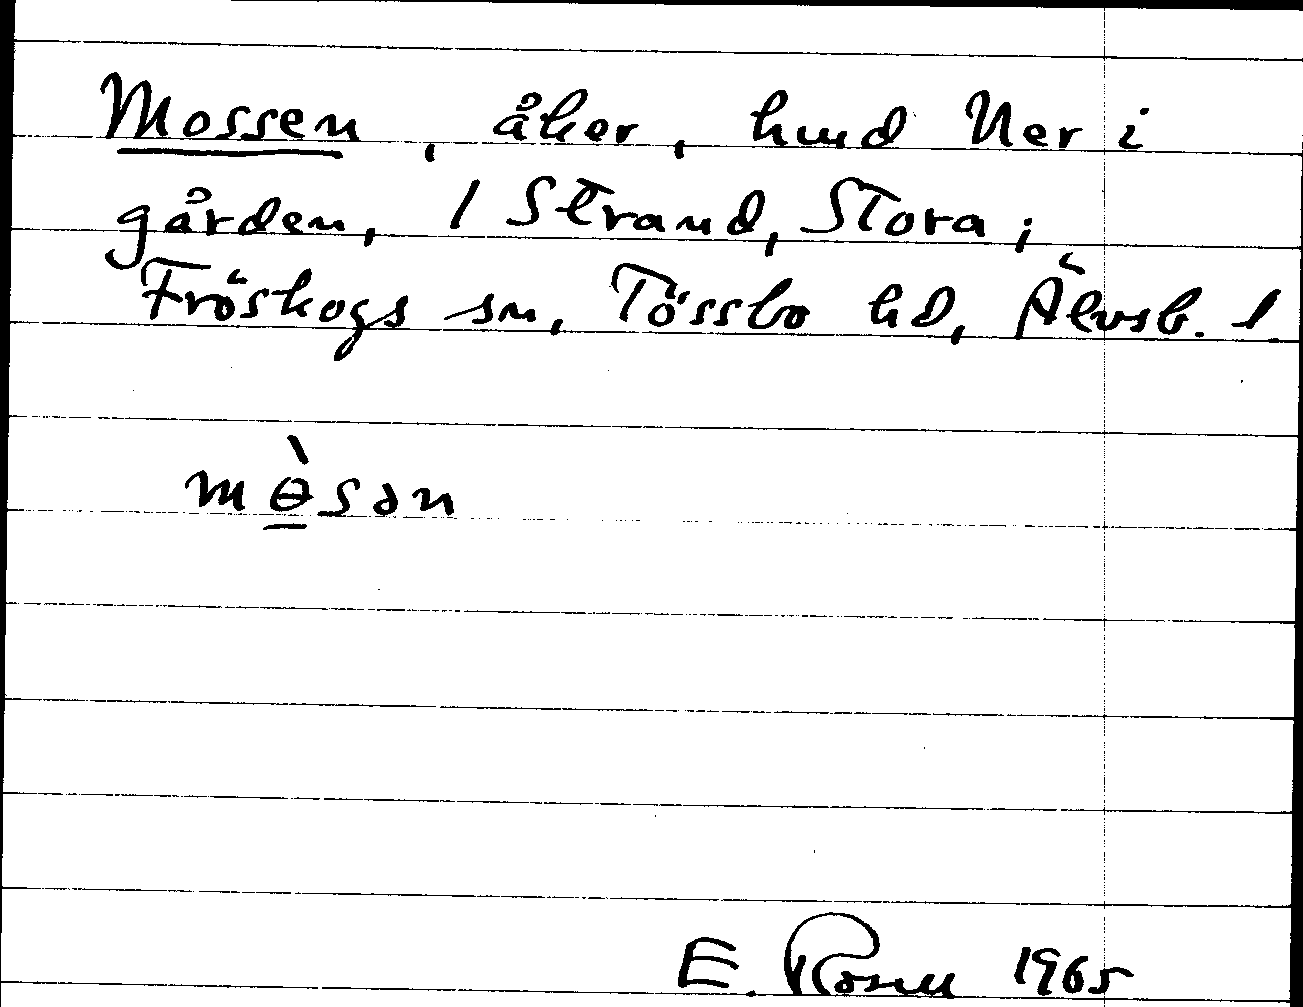 Mossen, åker, hmd Ner i
gården, 1 Strand, Stora;
Fröskogs sn, Tössbo hd, Älvsb. l.
mɵ̀sən
E. Rosell 1965